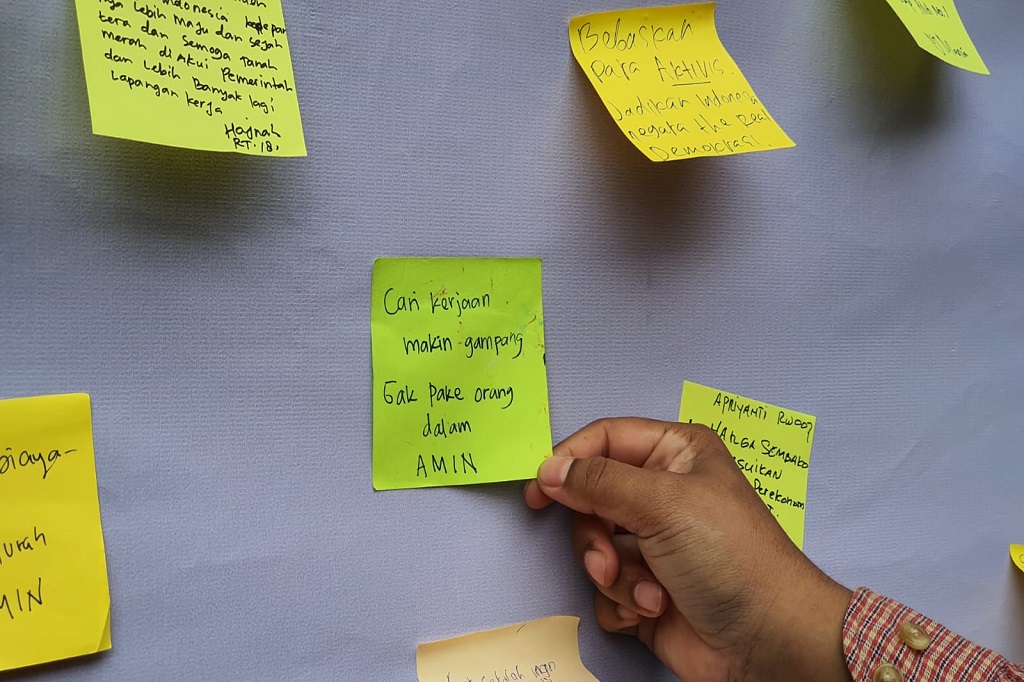 Indonesia kedepan
nya lebih maju dan sejah
tera dan semoga Tanah
merah diAkui Pemerintah
dan lebih Banyak lagi
Lapangan kerja.
Hajnah
RT. 18.
Bebaskan
para AKTIVIS.
Jadikan Indonesia
negara the real
Demokrasi.
Cari kerjaan
makin gampang
Gak pake orang
dalam
AMIN
APRIYANTI RW007
HARGA SEMBAKO
Perekonom
biaya-
murah
sekolah ingin